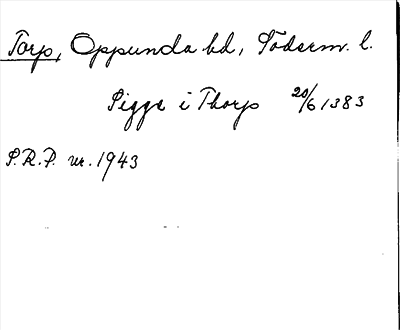 Torp, Oppunda hd, Söderm. l.
Sigge i Thorp 20/6 1383
S.R.P. nr. 1943